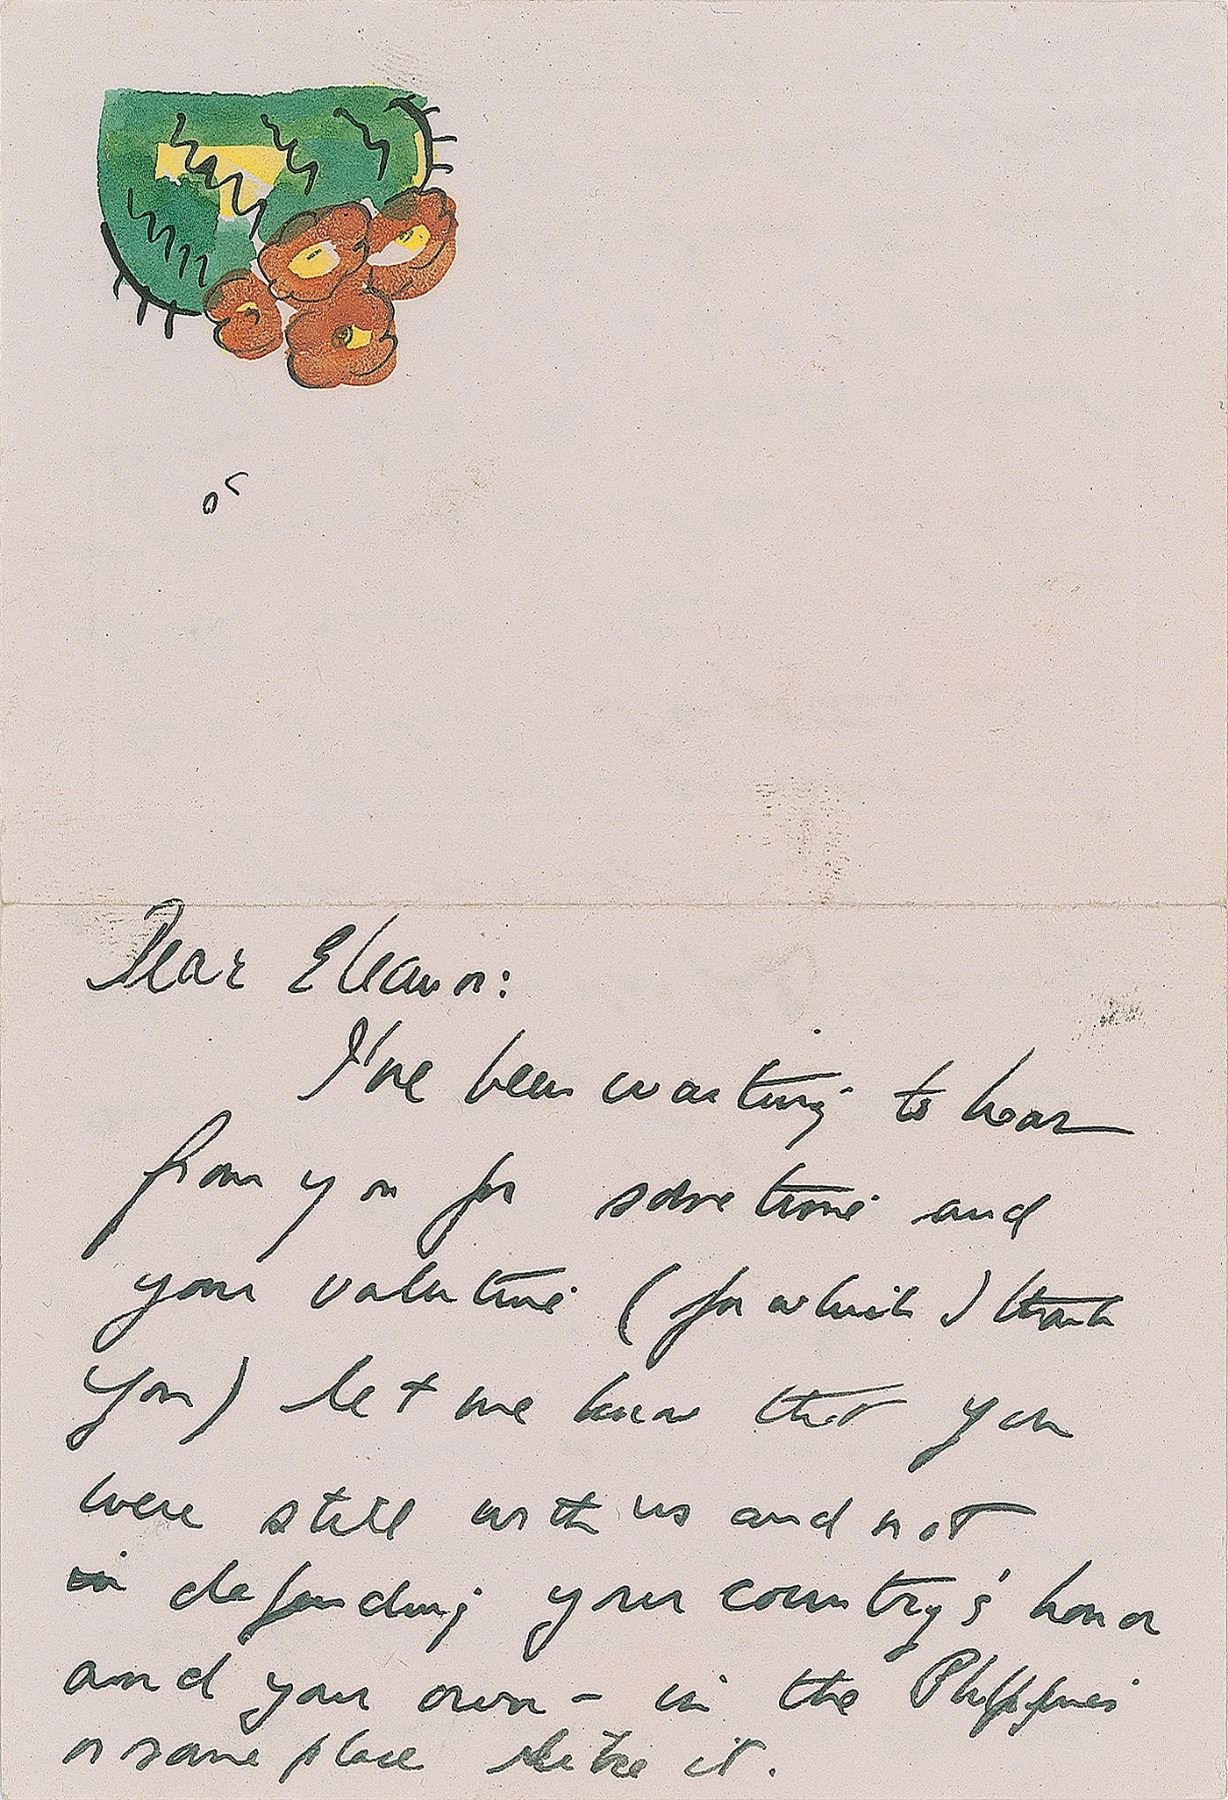 Dear Eleanor:
I've been waiting to hear
from you for sometime and
your valentine (for which) thank
you) let me know that you
were still with us and not
in defending your country's honor
and your own - in the Philippines
or some place like it.